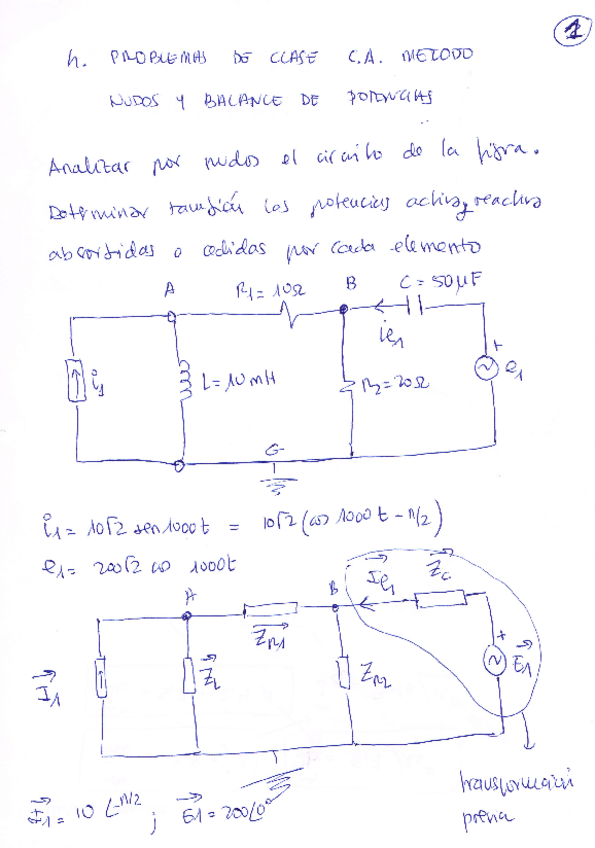 1
4. PROBLEMAS DE CLASE C.A. METODO
NUDOS Y BALANCE DE POTENCIAS
Analizar por nudos el circuito de la figura.
Determinar también las potencias activa y reactiva
absorbidas o cedidas por cada elemento
A R1 = 10Ω B C = 50 µF
ie1
+
i1 L = 10 mH R2 = 20Ω e1
G
i1 = 10√2 sen 1000t = 10√2 (cos 1000t - π/2)
e1 = 200√2 cos 1000t
A B Ie1 Zc
ZR1
+
I1 ZL ZR2 E1
transformación
previa
I1 = 10 ∠-π/2 ; E1 = 200∠0°